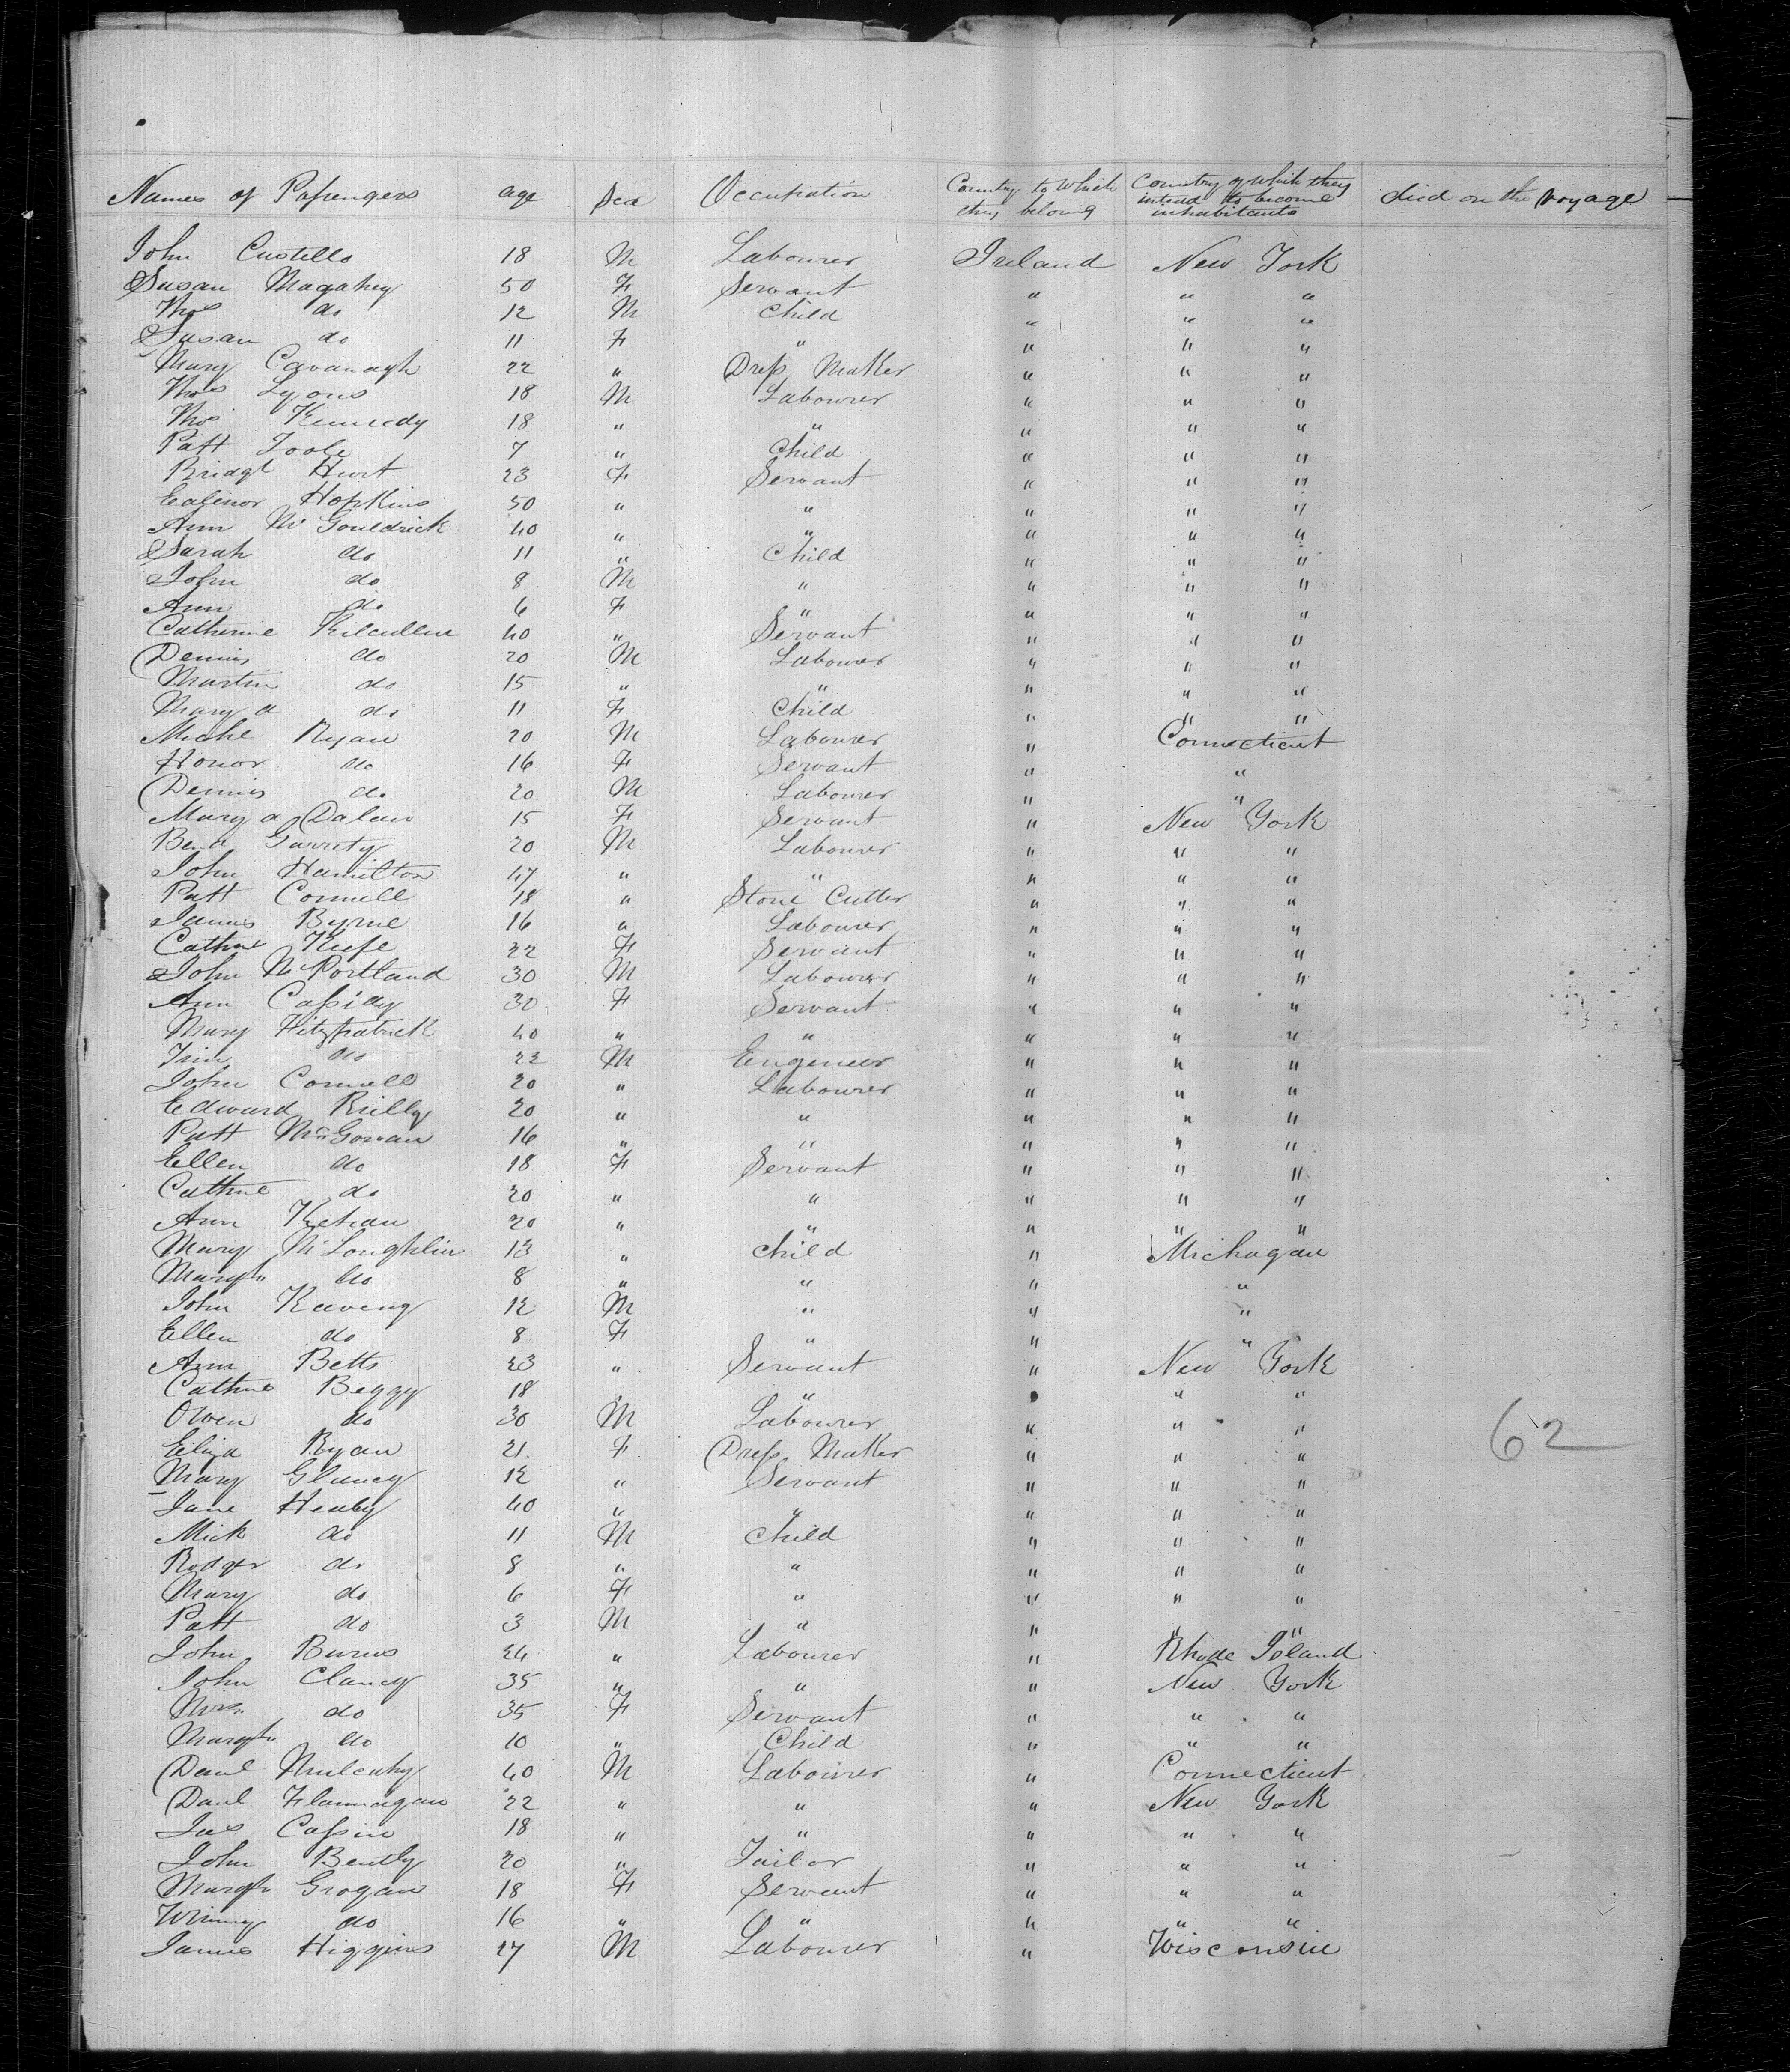 Names of Passengers age Sex Occupation Country to which they belong Country of which they intend to become inhabitants died on the voyage
John Custello 18 M Labourer Ireland New York
Susan Magahey 50 F Servant " " "
Thos do 12 M Child " " "
Susan do 11 F " " " "
Mary Cavanagh 22 " Dress Maker " " "
Thos Lyons 18 M Labourer " " "
Thos Kennedy 18 " " " " "
Patt Toole 7 " Child " " "
Bridgt Hurt 23 F Servant " " "
Ealenor Hopkins 50 " " " " "
Ann McGouldrick 40 " " " " "
Sarah do 11 " Child " " "
John do 8 M " " " "
Ann do 6 F " " " "
Catherine Kilcullen 40 " Servant " " "
Dennis do 20 M Labourer " " "
Martin do 15 " " " " "
Mary a do 11 F Child " " "
Michl Ryan 20 M Labourer " Connecticut
Honor do 16 F Servant " "
Dennis do 20 M Labourer " "
Mary a Dalan 15 F Servant " New York
Bend Garrity 20 M Labourer " " "
John Hamilton 47 " " " " "
Patt Connell 18 " Stone Cutter " " "
James Byrne 16 " Labourer " " "
Cathne Keefe 22 F Servant " " "
John McPortland 30 M Labourer " " "
Ann Cassidy 30 F Servant " " "
Mary Fitzpatrick 40 " " " " "
Jim do 22 M Engeneer " " "
John Connell 20 " Labourer " " "
Edward Reilly 20 " " " " "
Patt McGowan 16 " " " " "
Ellen do 18 F Servant " " "
Cathne do 20 " " " " "
Ann Kehau 20 " " " " "
Mary McLoughlin 13 " Child " Michagan
Margt do 8 " " " "
John Keaveny 12 M " " "
Ellen do 8 F " " "
Ann Betts 23 " Servant " New York
Cathne Beggy 18 " " " " "
Owen do 30 M Labourer " " "
Eliza Ryan 21 F Dress Maker " " "
Mary Glancy 12 " Servant " " "
Jane Healy 40 " " " " "
Mick do 11 M Child " " "
Rodger do 8 " " " " "
Mary do 6 F " " " "
Patt do 3 M " " " "
John Burns 24 " Labourer " Rhode Island
John Clancy 35 " " " New York
Mrs do 35 F Servant " " "
Margt do 10 " Child " " "
Danl Mulcahy 40 M Labourer " Connecticut
Danl Flannagan 22 " " " New York
Jas Cassin 18 " " " " "
John Bently 20 " Tailor " " "
Margt Grogan 18 F Servant " " "
Winny do 16 " " " " "
James Higgins 27 M Labourer " Wisconsin
62